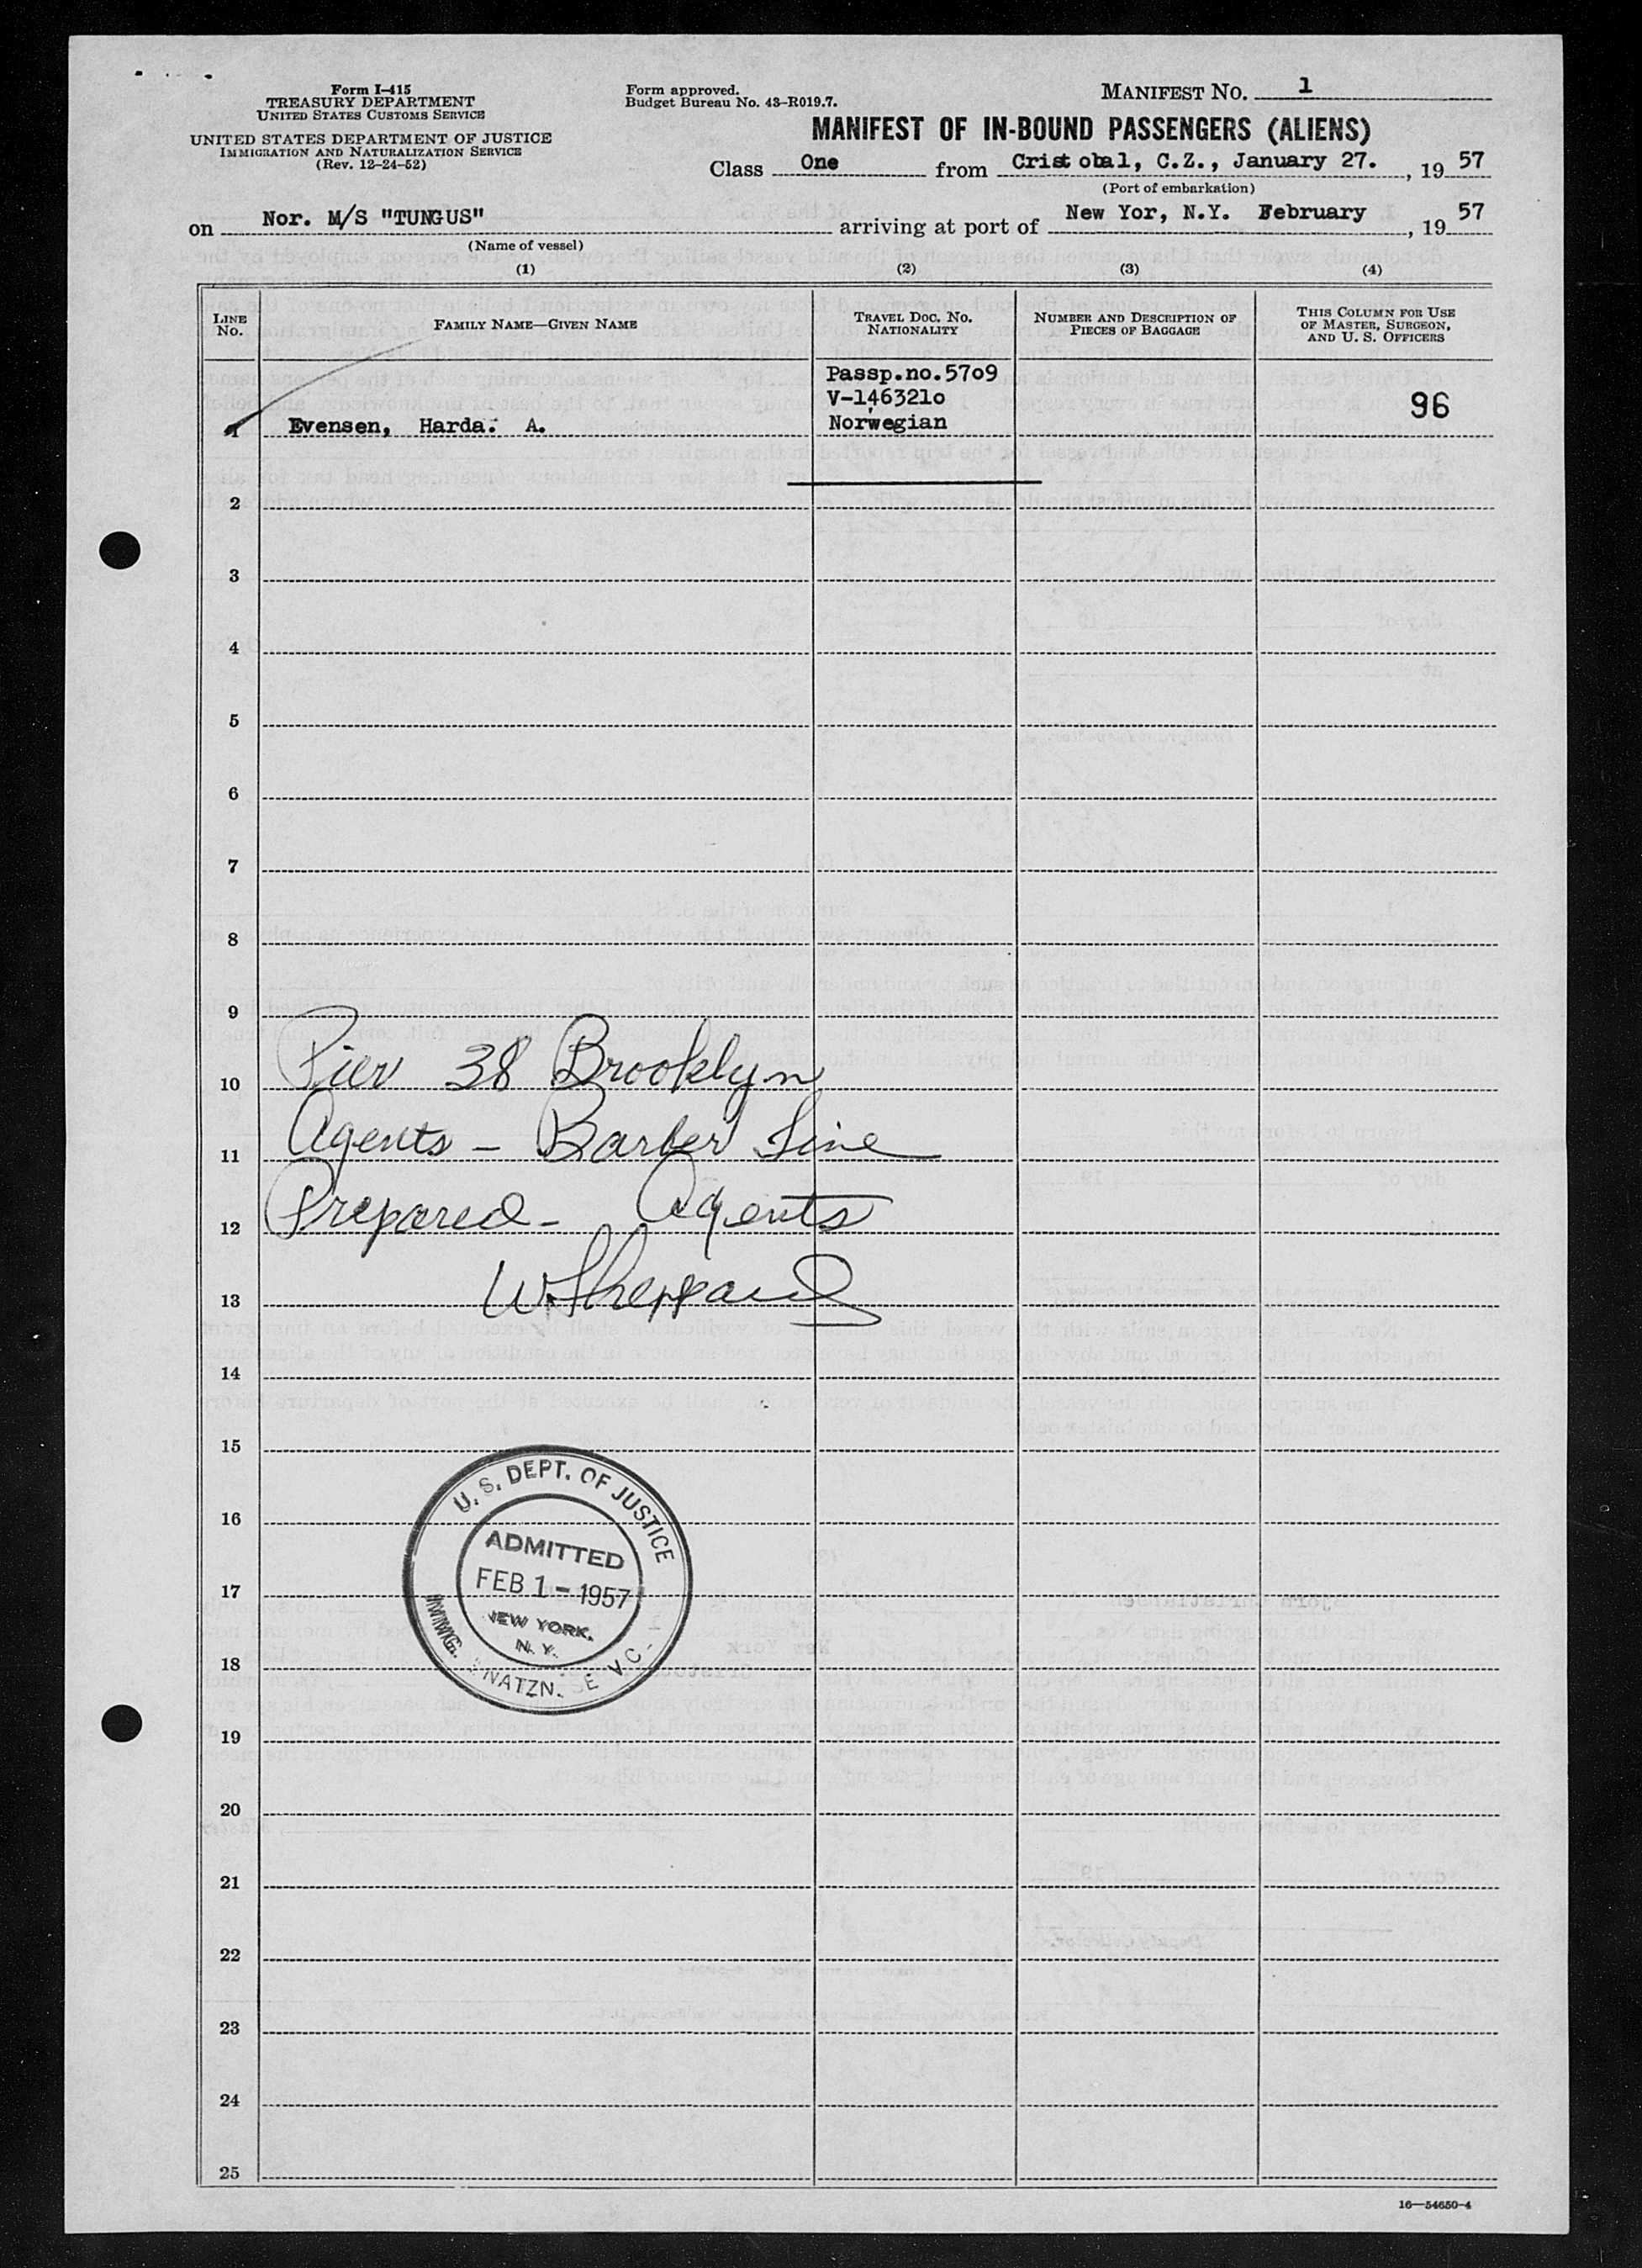 Form I-415
TREASURY DEPARTMENT
UNITED STATES CUSTOMS SERVICE
UNITED STATES DEPARTMENT OF JUSTICE
IMMIGRATION AND NATURALIZATION SERVICE
(Rev. 12-24-52)
Form approved.
Budget Bureau No. 43-R019.7.
MANIFEST NO. 1
MANIFEST OF IN-BOUND PASSENGERS (ALIENS)
Class One from Cristobal, C.Z., January 27. , 19 57
(Port of embarkation)
on Nor. M/S "TUNGUS" arriving at port of New Yor, N.Y. February , 19 57
(Name of vessel)
(1) (2) (3) (4)
LINE No. FAMILY NAME—GIVEN NAME TRAVEL DOC. NO. NATIONALITY NUMBER AND DESCRIPTION OF PIECES OF BAGGAGE THIS COLUMN FOR USE OF MASTER, SURGEON, AND U. S. OFFICERS
Passp.no.5709
V-146321o 96
1 Evensen, Harda. A. Norwegian
2
3
4
5
6
7
8
9
10 Pier 38 Brooklyn
11 Agents - Barber Line
12 Prepared - Agents
13 W. Sheppard
14
15
16
17
18
19
20
21
22
23
24
25
U. S. DEPT. OF JUSTICE
ADMITTED
FEB 1 - 1957
NEW YORK,
N. Y.
IMMIG. NATZN.
16—54650-4